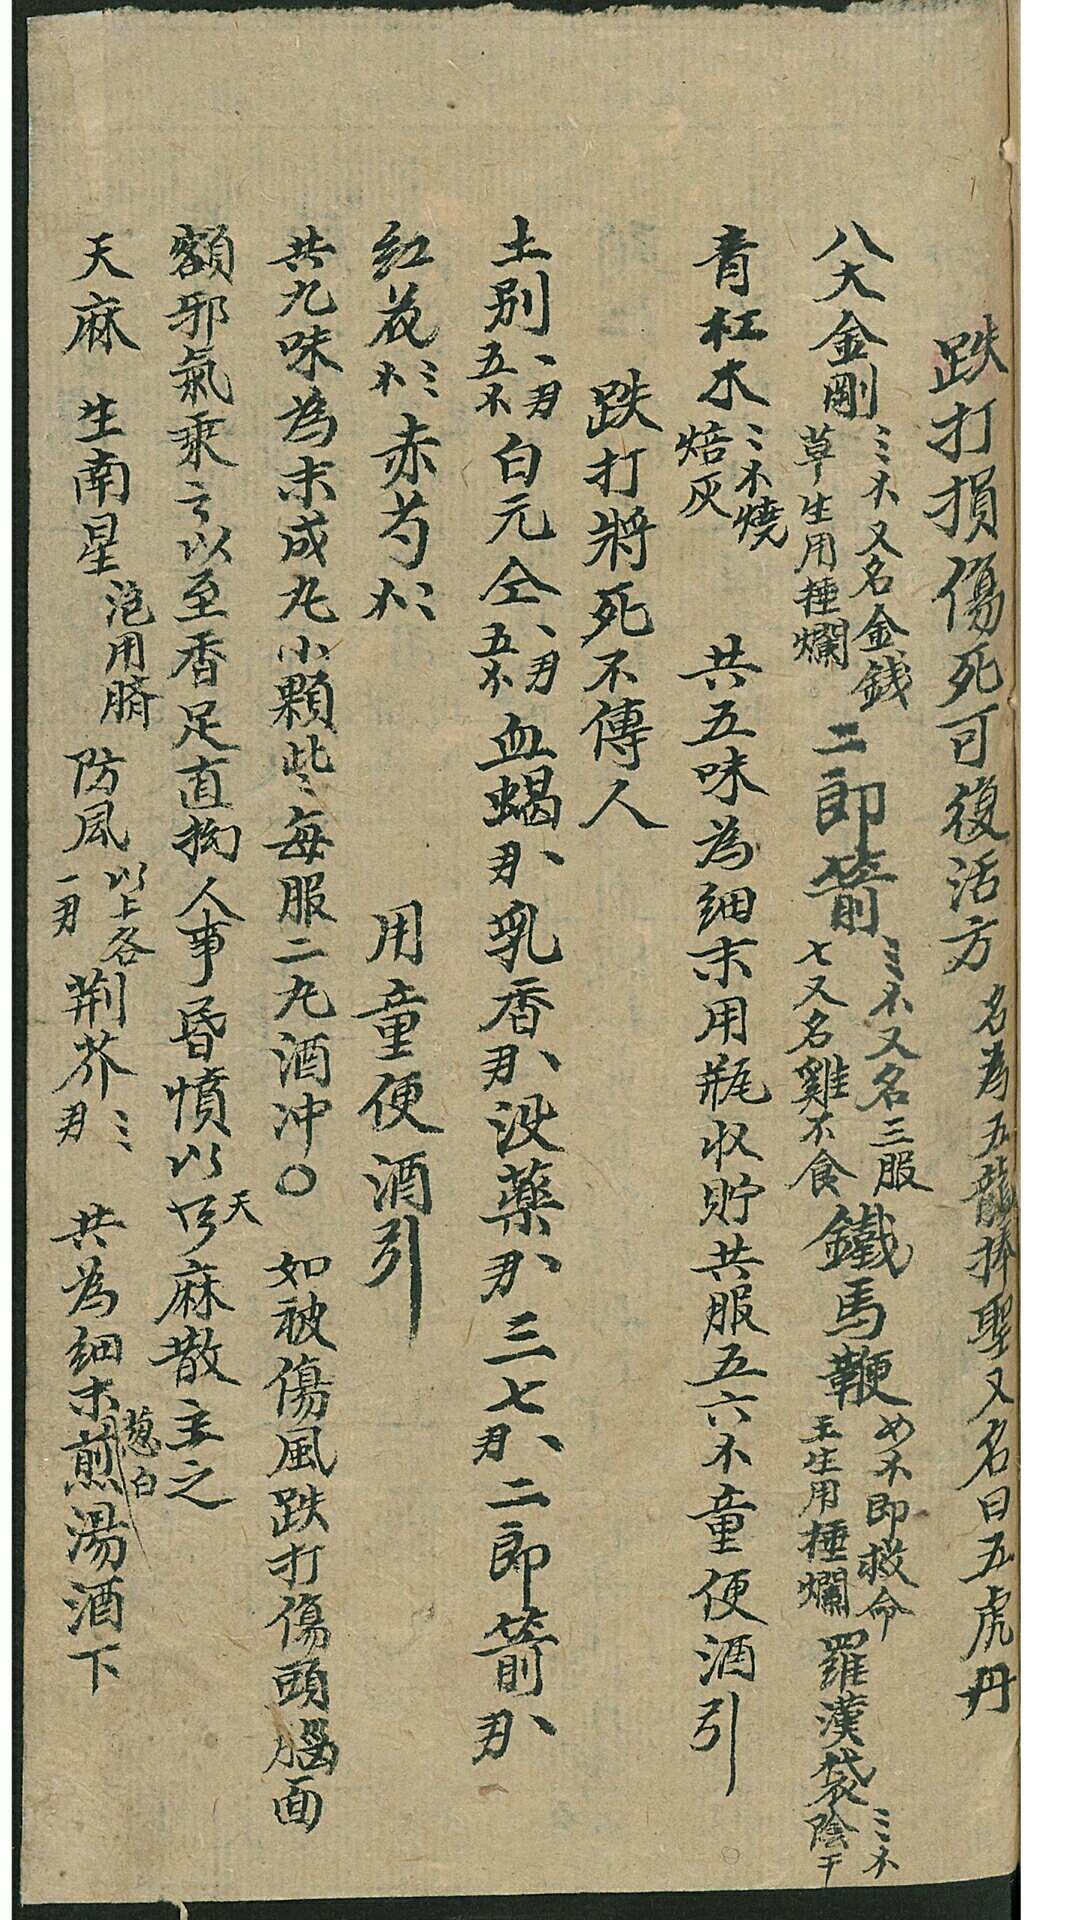 跌打損傷死可復活方 名為五龍捧聖又名曰五虎丹
八大金剛 三不又名金錢草生用搥爛 二郎箭 三不又名三服七又名雞不食 鐵馬鞭 不即救命王生用搥爛 羅漢袋 三不陰干
青杠木 三不燒焙灰 共五味為細末用瓶收貯共服五六不童便酒引
跌打將死不傳人
土別 五不 白元仝 五不 血蝎 乳香 没藥 三七 二郎箭
紅花 赤芍 用童便酒引
共九味為末成丸小顆些每服二九酒冲〇 如被傷風跌打傷頭腦面
額邪氣乘之以至香足直拘人事昏憒以天麻散主之
天麻 生南星 泡用臍 防風 以上各一 荆芥 三 共為細末葱白煎湯酒下